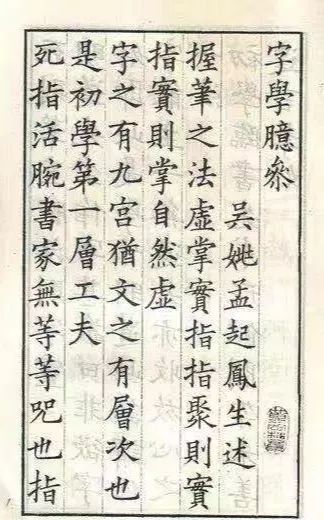 字學臆參
吳姚孟起鳳生述
握筆之法虛掌實指指聚則實
指實則掌自然虛
字之有九宮猶文之有層次也
是初學第一層工夫
死指活腕書家無等等咒也指